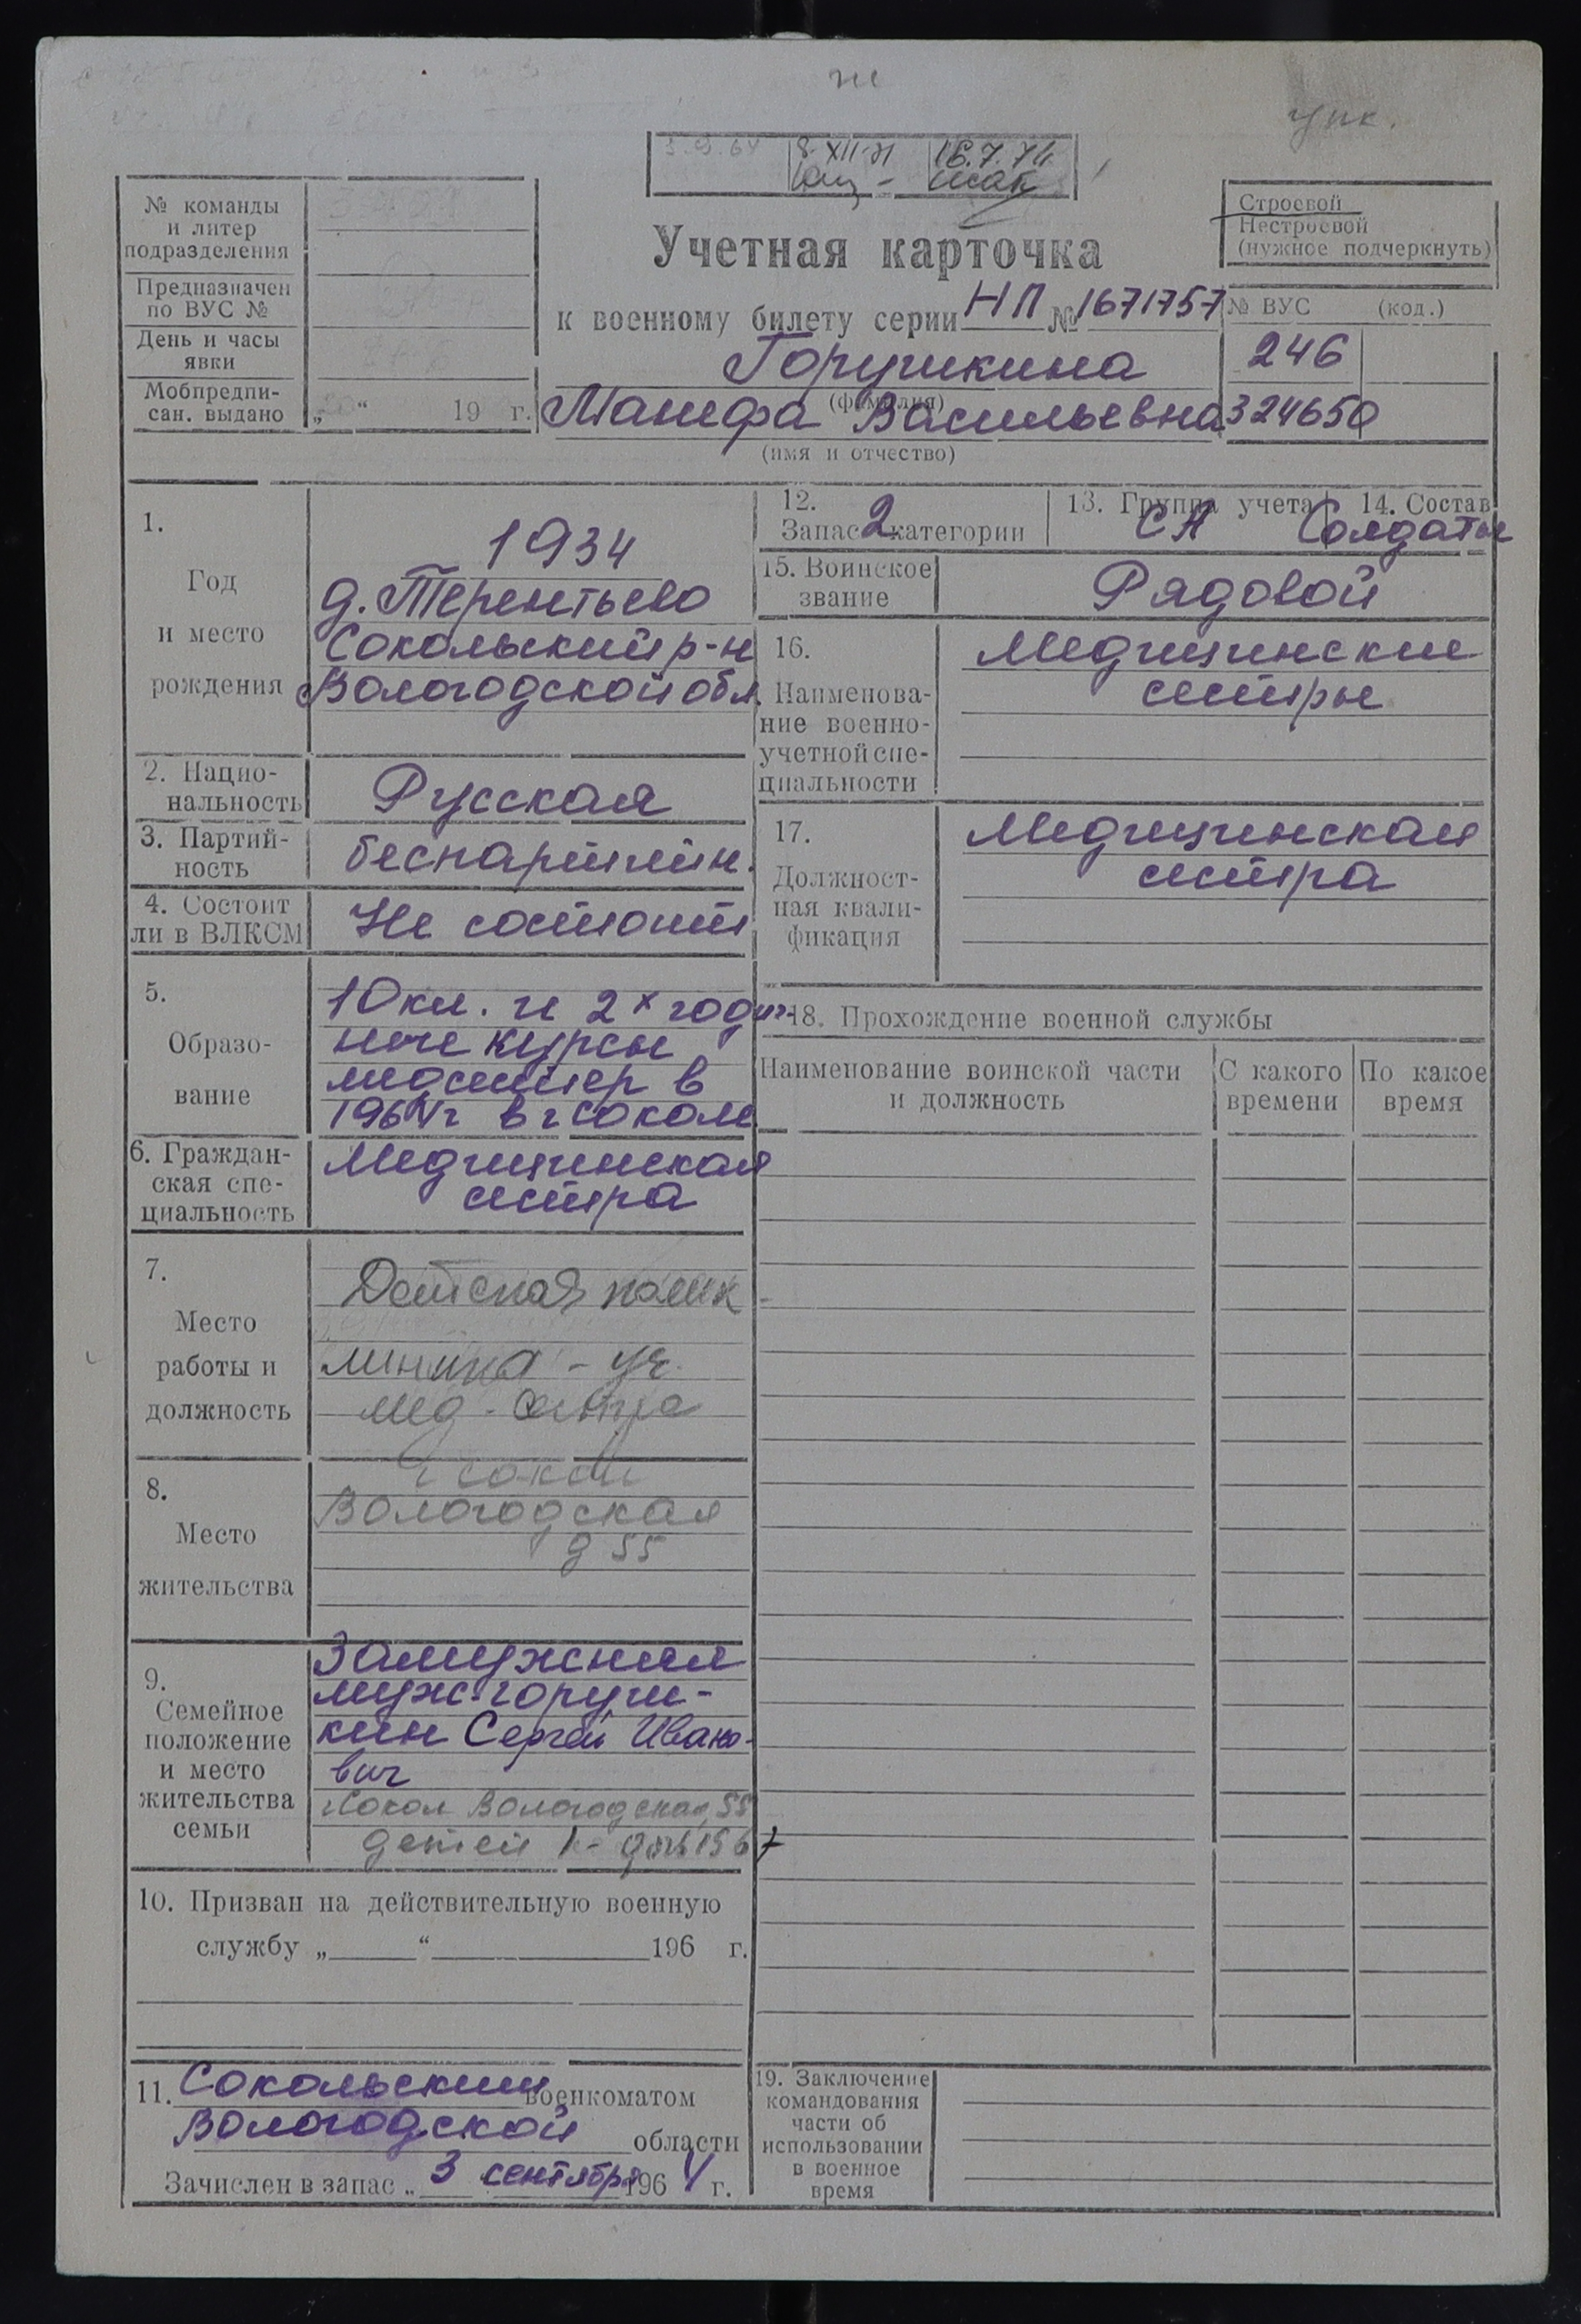 ж
упк.
3.9.64 8.XII-71 16.7.74
Строевой
Нестроевой
(нужное подчеркнуть)
№ команды
и литер
подразделения
Предназначен
по ВУС №
День и часы
явки
Мобпредпи-
сан. выдано „ “ 19 г.
Учетная карточка
к военному билету серии НП № 1671757
Горушкина
(фамилия)
Манефа Васильевна
(имя и отчество)
№ ВУС (код.)
246
324650
1.
Год
и место
рождения
1934
д. Терентьево
Сокольский р-н
Вологодской обл.
2. Нацио-
нальность
Русская
3. Партий-
ность
беспартийн.
4. Состоит
ли в ВЛКСМ
Не состоит
5.
Образо-
вание
10 кл. и 2х годич-
ные курсы
медсестер в
1964г в г Соколе
6. Граждан-
ская спе-
циальность
Медицинская
сестра
7.
Место
работы и
должность
Детская полик-
линика - уч.
мед-сестра
8.
Место
жительства
г Сокол
Вологодская
д 55
9.
Семейное
положение
и место
жительства
семьи
Замужняя
муж-горуш-
кин Сергей Ивано-
вич
г Сокол Вологодская, 55
детей 1- дочь 1967
10. Призван на действительную военную
службу „ “ 196 г.
11. Сокольским военкоматом
Вологодской области
Зачислен в запас „ 3 сентября 1964 г.
12.
Запас 2 категории
13. Группа учета
СА
14. Состав
Солдаты
15. Воинское
звание
Рядовой
16.
Наименова-
ние военно-
учетной спе-
циальности
Медицинские
сестры
17.
Должност-
ная квали-
фикация
Медицинская
сестра
18. Прохождение военной службы
Наименование воинской части
и должность
С какого
времени
По какое
время
19. Заключение
командования
части об
использовании
в военное
время